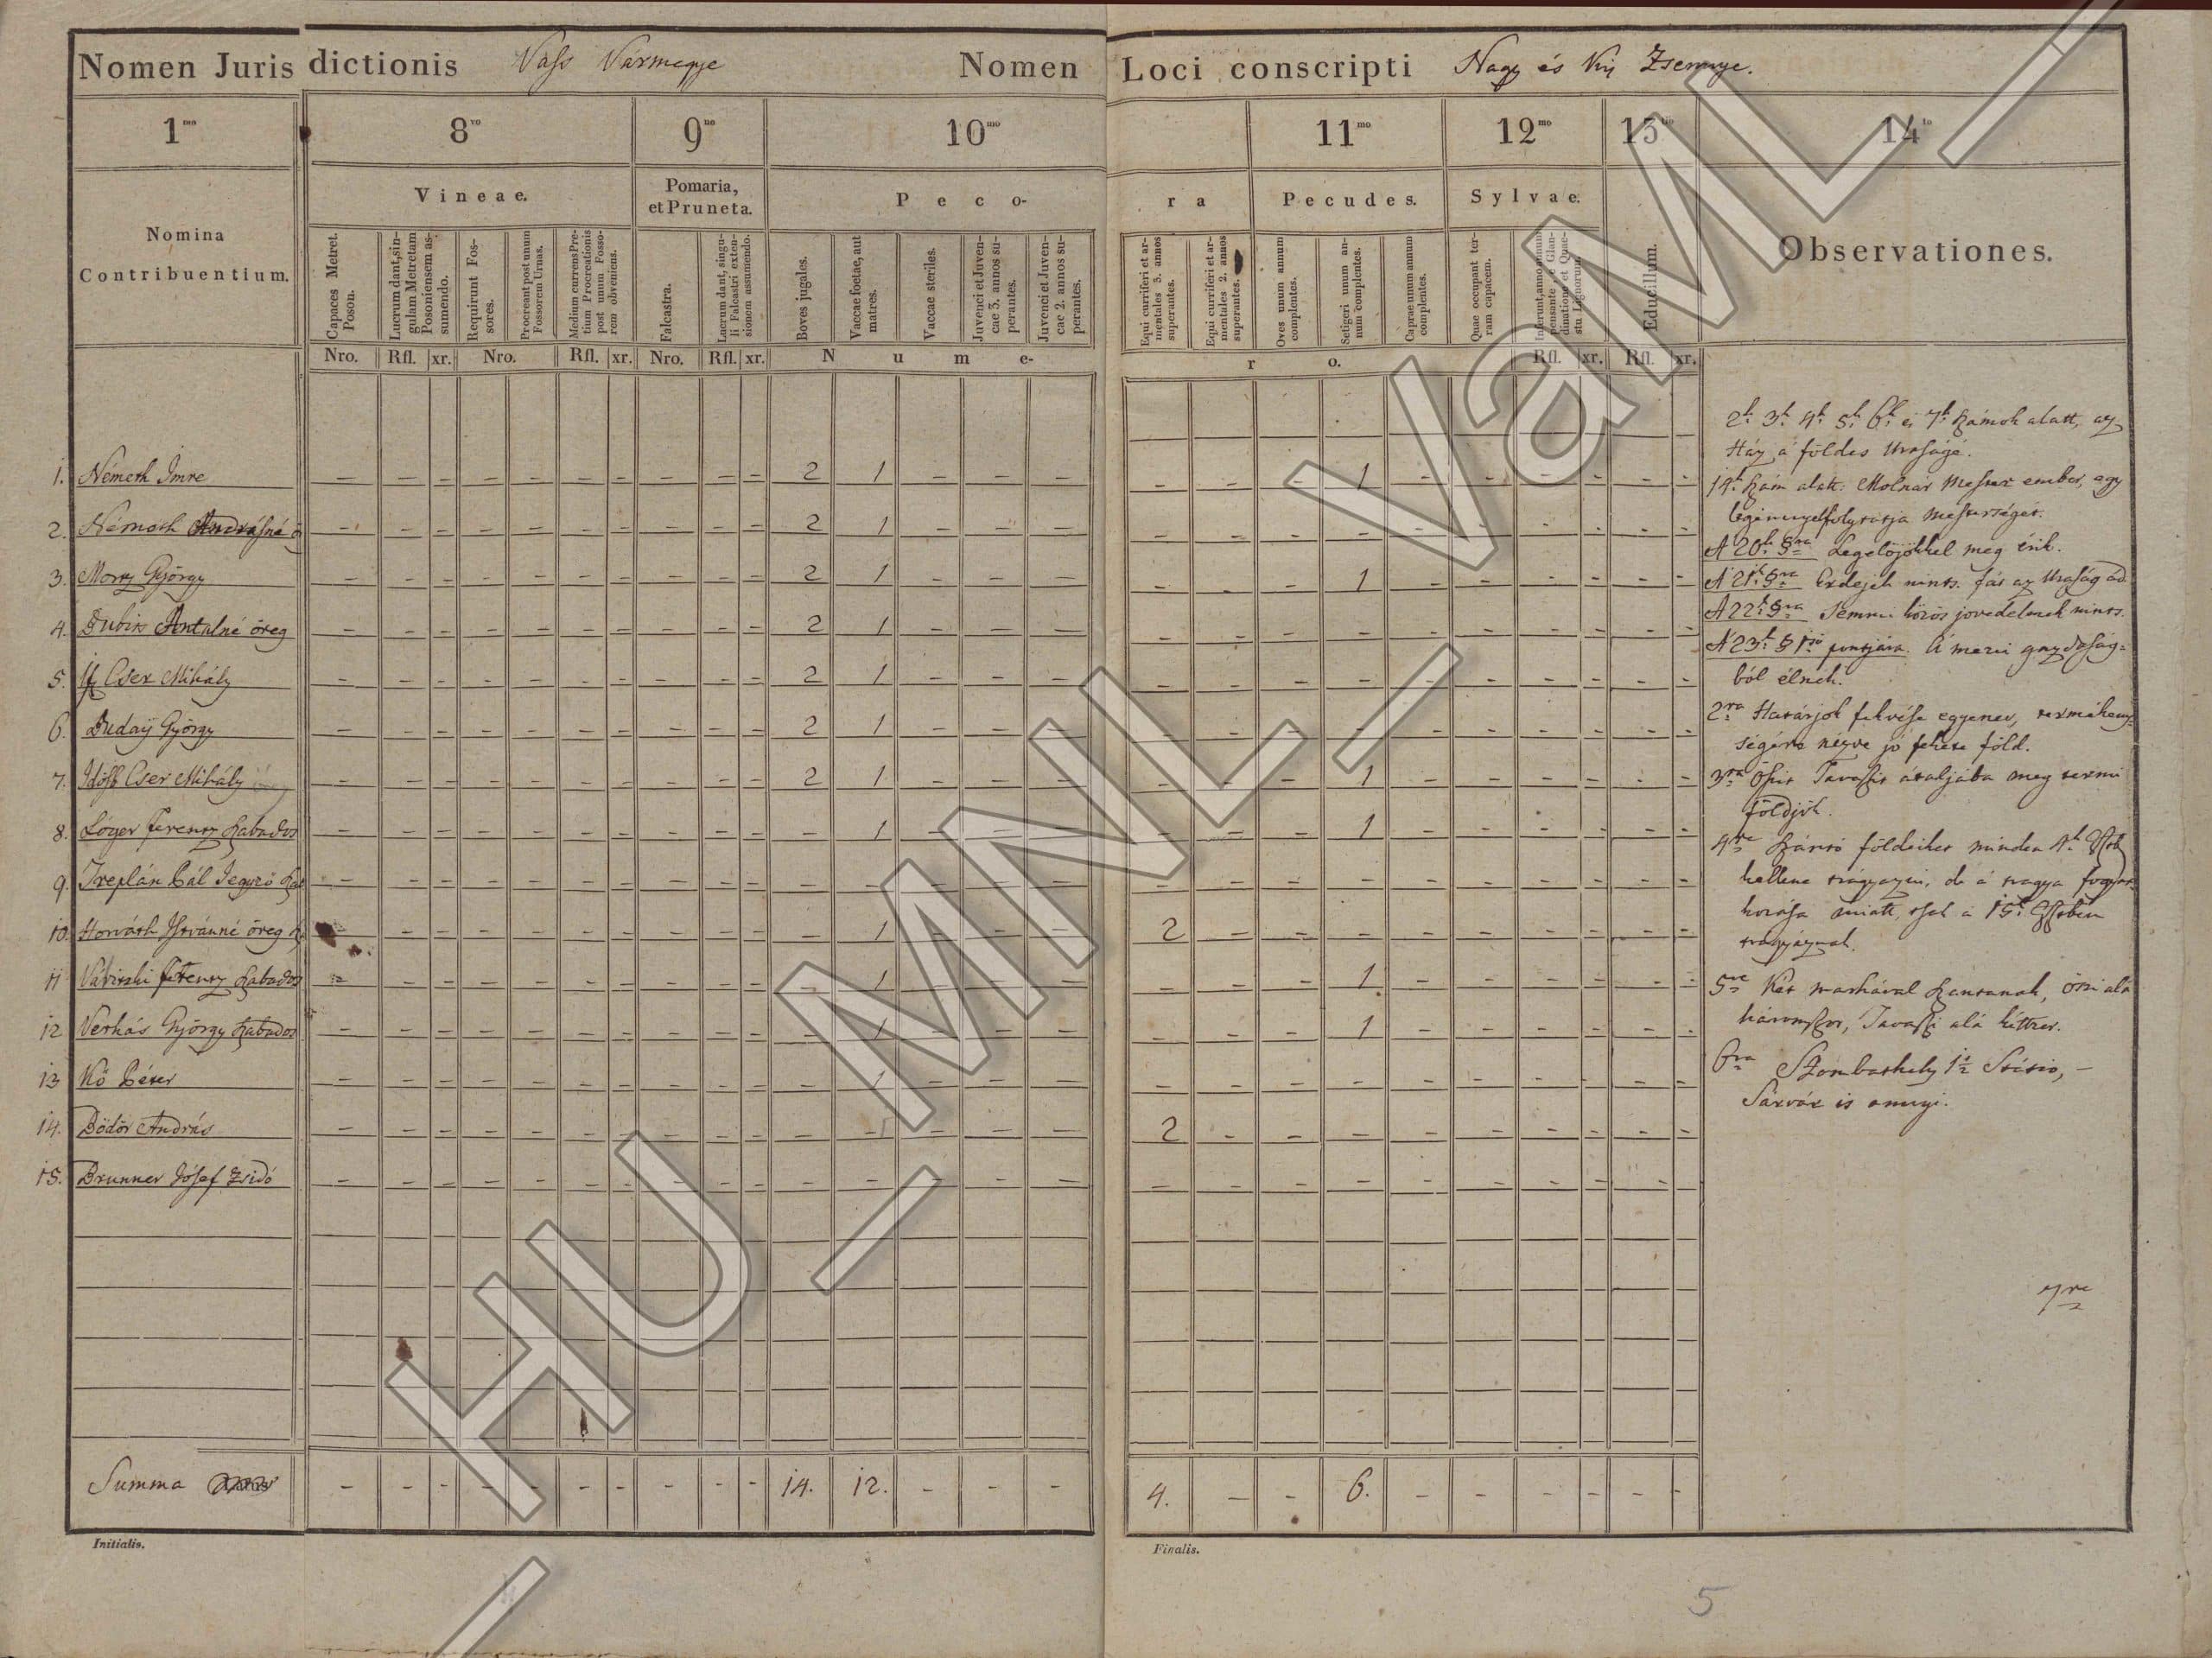 Nomen Jurisdictionis Vass Vármegye Nomen Loci conscripti Nagy és Kis Zsennye.
1mo 8vo 9no 10mo 11mo 12mo 13tio 14to
Nomina Contribuentium.
Vineae.
Pomaria, et Pruneta.
Pecora
Pecudes.
Sylvae.
Educillum.
Observationes.
Capaces Metret. Poson.
Lucrum dant, singulam Metretam Posoniensem assumendo.
Requirunt Fossores.
Procreant post unum Fossorem Urnas.
Medium currens Pretium Procreationis post unum Fossorem obveniens.
Falcastra.
Lucrum dant, singuli Falcastri extensionem assumendo.
Boves jugales.
Vaccae foetae, aut matres.
Vaccae steriles.
Juvenci et Juvencae 3. annos superantes.
Juvenci et Juvencae 2. annos superantes.
Equi curriferi et armentales 3. annos superantes.
Equi curriferi et armentales 2. annos superantes.
Oves unum annum complentes.
Setigeri unum annum complentes.
Caprae unum annum complentes.
Quae occupant terram capacem.
Inferunt, anno annum pensante, e Glandinatione et Quaestu Lignorum.
Nro. Rfl. xr. Nro. Rfl. xr. Nro. Rfl. xr. Nume- ro. Rfl. xr. Rfl. xr.
1. Németh Imre – – – – – – – – – – 2 1 – – – – – – 1 – – – – – –
2. Németh Andrásné – – – – – – – – – – 2 1 – – – – – – – – – – – – –
3. Morz György – – – – – – – – – – 2 1 – – – – – – 1 – – – – – –
4. Dubits Antalné öreg – – – – – – – – – – 2 1 – – – – – – – – – – – – –
5. Ifj Cser Mihály – – – – – – – – – – 2 1 – – – – – – – – – – – – –
6. Buday György – – – – – – – – – – 2 1 – – – – – – – – – – – – –
7. Idősb Cser Mihály – – – – – – – – – – 2 1 – – – – – – 1 – – – – – –
8. Loger Ferentz Szabados – – – – – – – – – – – 1 – – – – – – 1 – – – – – –
9. Treplán Pál Jegyző – – – – – – – – – – – – – – – – – – – – – – – – –
10. Horváth Istvánné öreg – – – – – – – – – – – 1 – – – 2 – – – – – – – – –
11 Ferentz Szabados – – – – – – – – – – – 1 – – – – – – 1 – – – – – –
12 Verhás György Szabados – – – – – – – – – – – 1 – – – – – – 1 – – – – – –
13 Kő Péter – – – – – – – – – – – 1 – – – – – – – – – – – – –
14. Bödör András – – – – – – – – – – – – – – – 2 – – – – – – – – –
15. Brunner Jósef Zsidó – – – – – – – – – – – – – – – – – – – – – – – – –
Summa – – – – – – – – – – 14. 12. – – – 4. – – 6. – – – – – –
2k 3k 4k 5k 6k és 7k számok alatt, az
Ház a földes Uraságé.
14k szám alatt. Molnár Mester ember, egy
mesterségét.
A 20k §ra Legelőjökkel meg érik.
A 21k §ra Erdejek nints. fát az Uraság ád.
A 22k §ra Semmi közös jövedelmek nints.
A 23k § 1ső pontjára. A mezei gazdaság-
ból élnek.
2ra Határjok fekvése egyenes, termékeny-
ségére nézve jó fekete föld.
3ra Őszit Tavaszit átaljába meg termi
földjök.
4re Szántó földeiket minden 4k Esztb
kellene trágyázni, de a tragya fogyat-
kozása miatt, tsak a 15k Esztben
tragyáznak.
5re Két marhával szántanak, őszi alá
háromszor, Tavaszi alá kéttzer.
6ra Szombathely 1 1/2 Státio, –
Sárvár is annyi.
7re
Initialis.
Finalis.
5
HU_MNL_VaML_